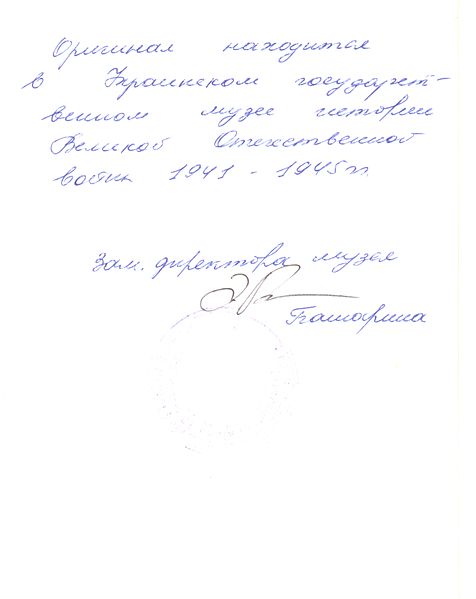 Оригинал находится
в Украинском государст-
венном музее истории
Великой Отечественной
войны 1941 - 1945 гг.
Зам. директора музея